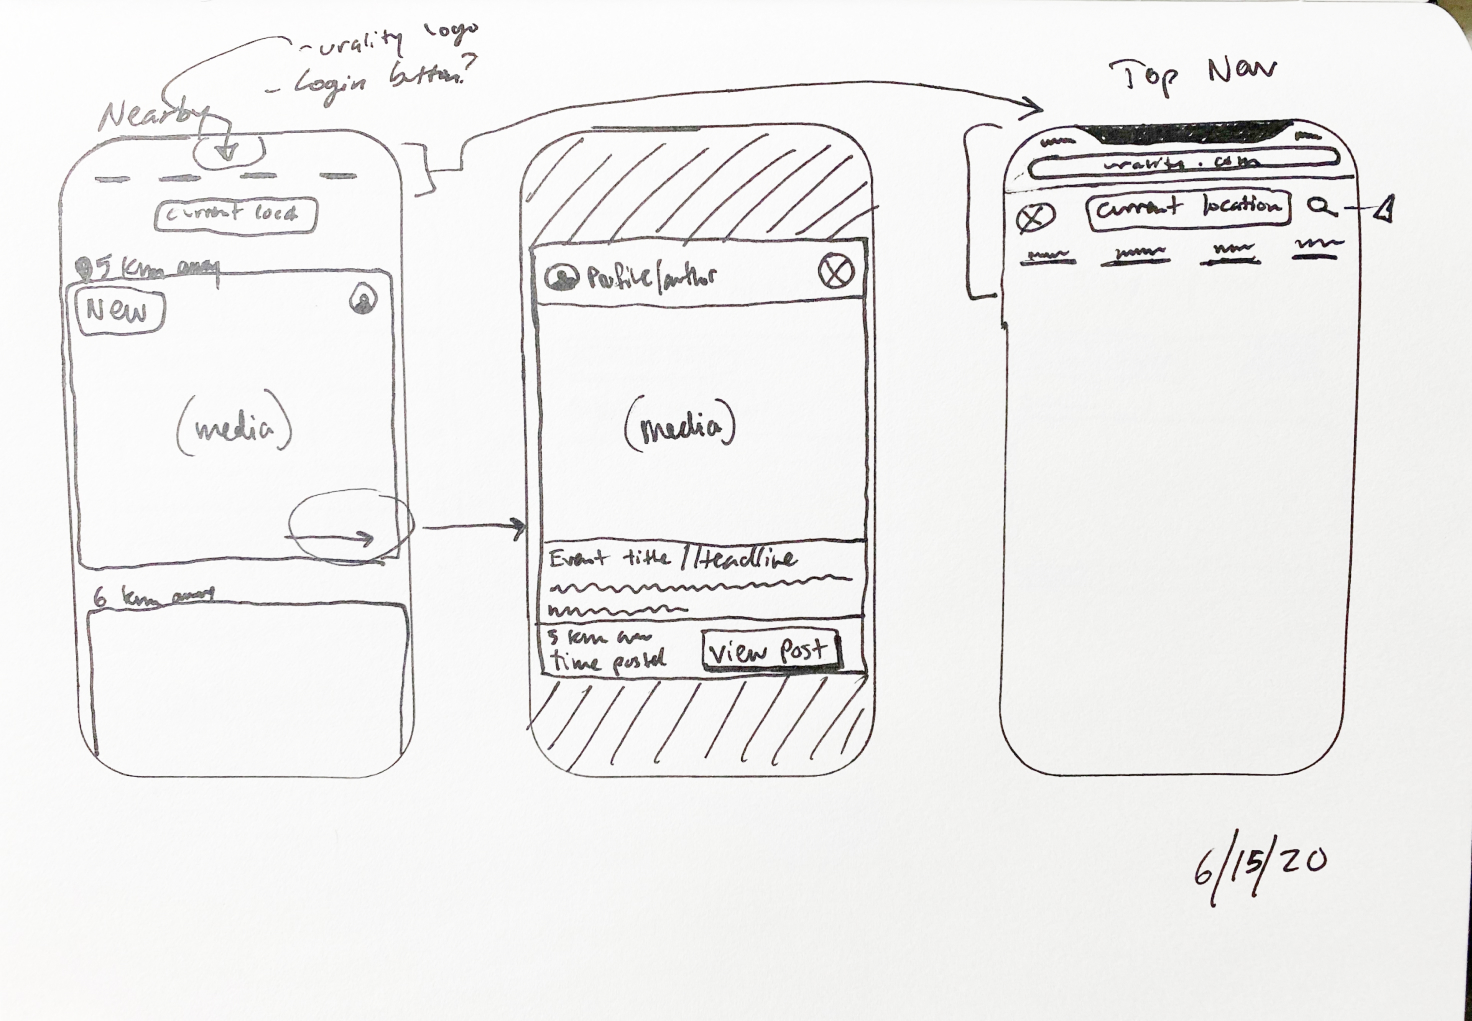 - urality logo
- Login button?
Nearby
current locat
5 km away
New
(media)
6 km away
Profile/author
(media)
Event title/Headline
5 km aw
time posted
View Post
Top Nav
urality.com
current location
6/15/20